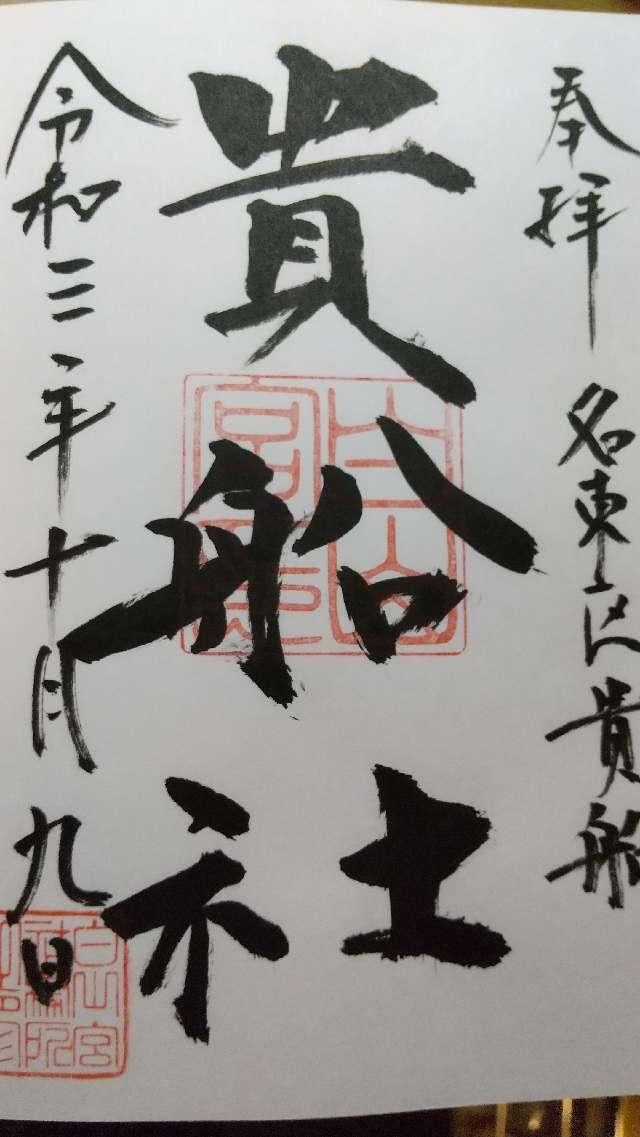 奉拝 名東区貴船
貴船社
令和三年十月九日
白山宮